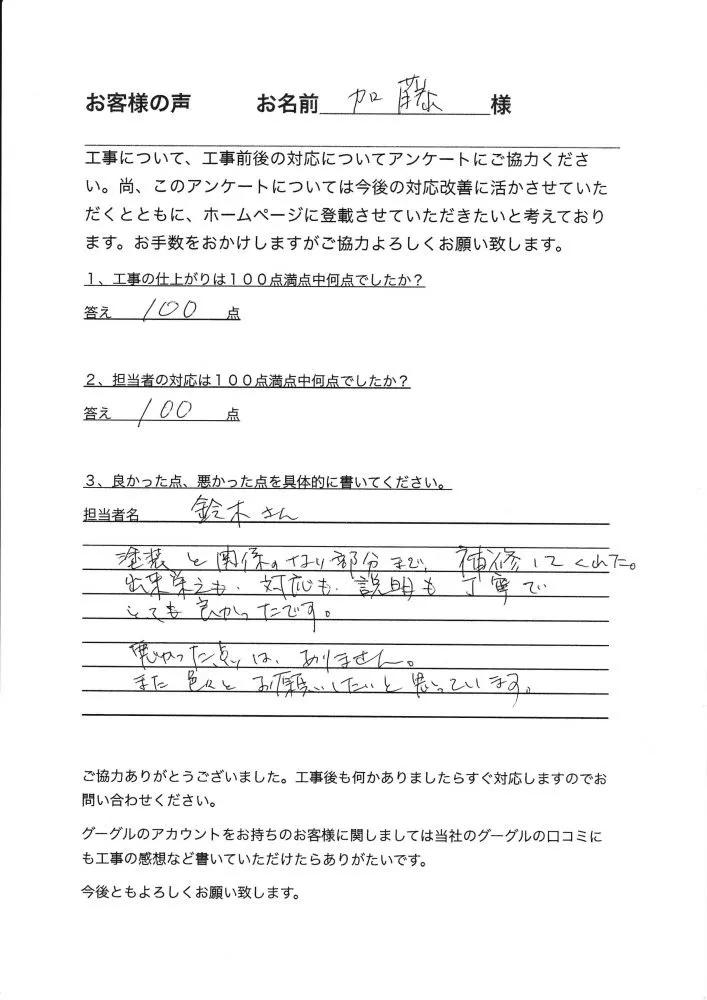 お客様の声 お名前 加藤 様
工事について、工事前後の対応についてアンケートにご協力くださ
い。尚、このアンケートについては今後の対応改善に活かさせていた
だくとともに、ホームページに登載させていただきたいと考えており
ます。お手数をおかけしますがご協力よろしくお願い致します。
1、工事の仕上がりは１００点満点中何点でしたか？
答え 100 点
2、担当者の対応は１００点満点中何点でしたか？
答え 100 点
3、良かった点、悪かった点を具体的に書いてください。
担当者名 鈴木さん
塗装と関係のない部分まで、補修してくれた。
出来栄えも、対応も、説明も丁寧で
とても良かったです。
悪かった点は、ありません。
また色々とお願いしたいと思っています。
ご協力ありがとうございました。工事後も何かありましたらすぐ対応しますのでお
問い合わせください。
グーグルのアカウントをお持ちのお客様に関しましては当社のグーグルの口コミに
も工事の感想など書いていただけたらありがたいです。
今後ともよろしくお願い致します。